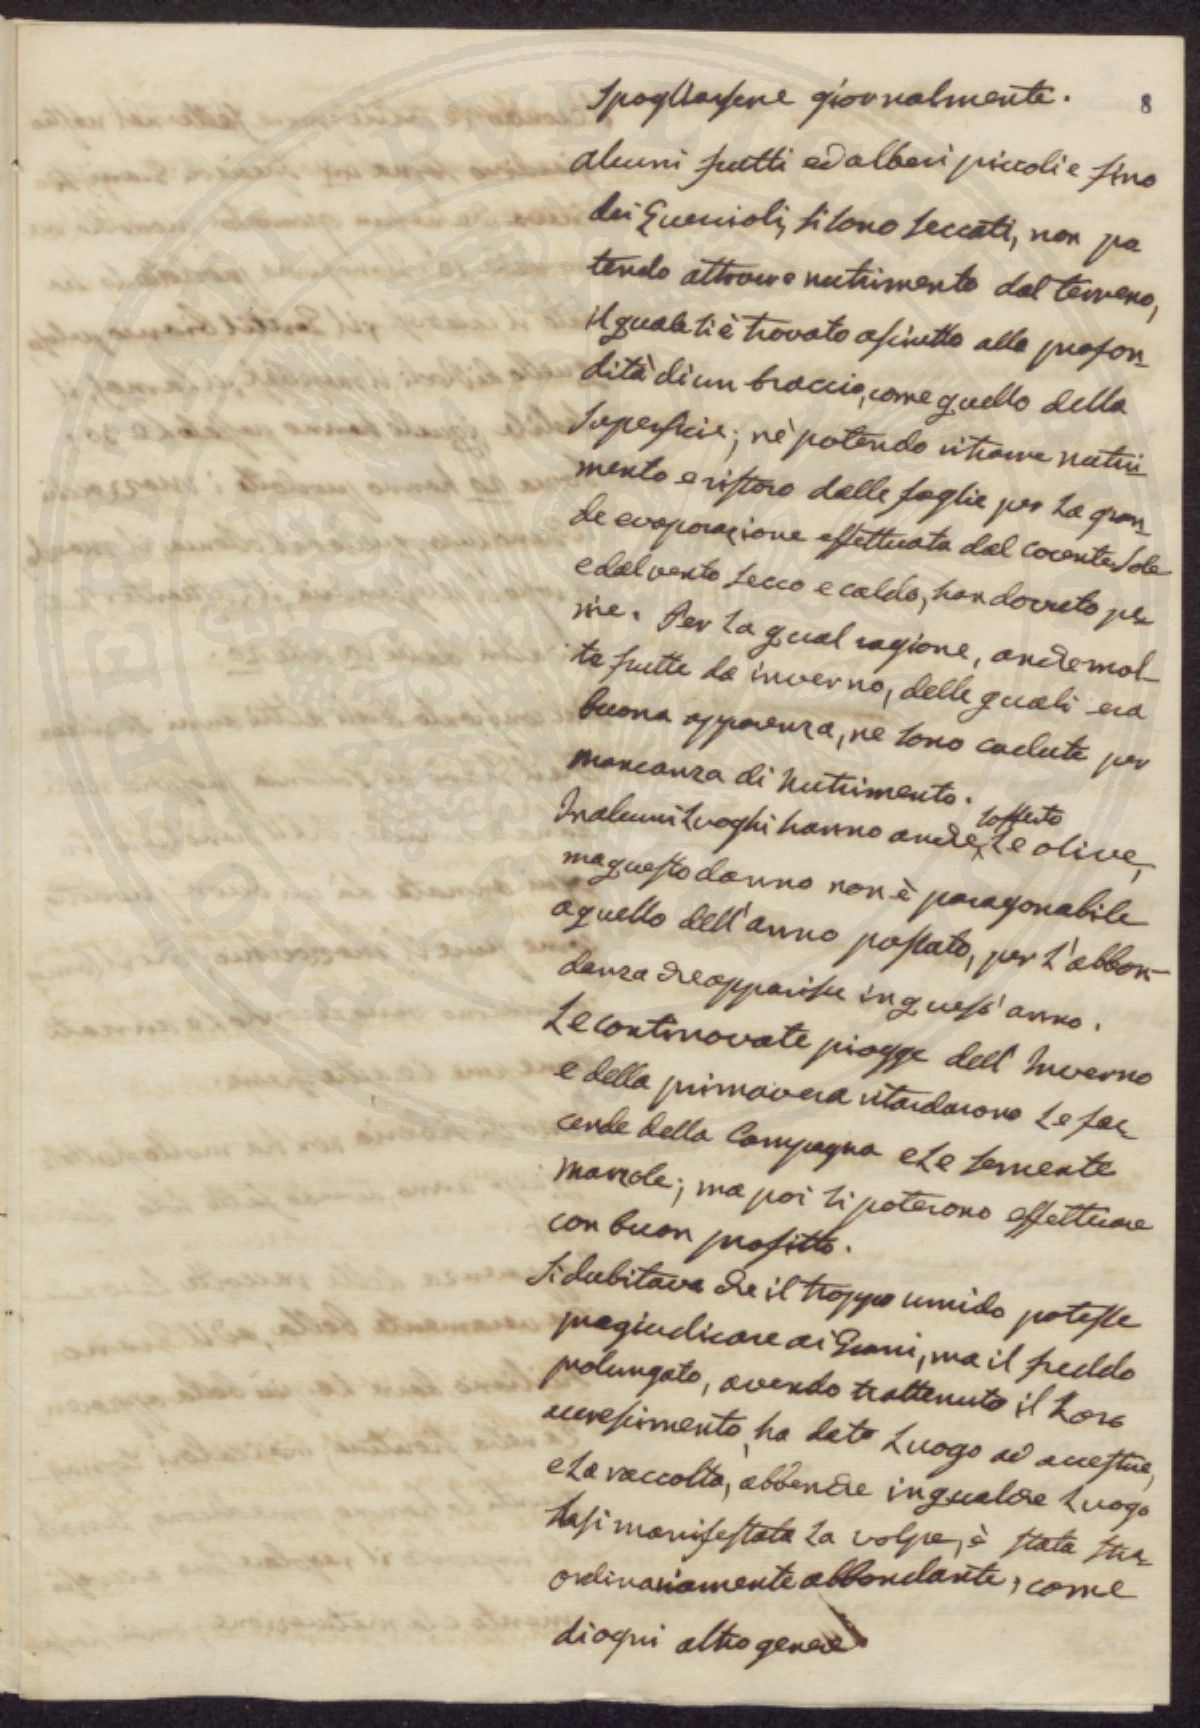 8
Spogliarsene giornalmente.
Alcuni frutti ed alberi piccoli e fino
dei Quercioli, si sono seccati, non po
tendo attrarre nutrimento dal terreno,
il quale si è trovato asciutto alla profon-
dità di un braccio, come quello della
Superficie; nè potendo ritrarre nutri-
mento e ristoro dalle foglie per la gran-
de evaporazione effettuata dal cocente Sole
e dal vento secco e caldo, han dovuto pe-
rire. Per la qual ragione, anche mol-
te frutte da inverno, delle quali era
buona apparenza, ne sono cadute per
mancanza di Nutrimento.
In alcuni Luoghi hanno anche sofferto le olive,
ma questo danno non è paragonabile
a quello dell'anno passato, per l'abbon-
danza che apparisce in quest'anno.
Le continovate piogge dell'Inverno
e della primavera ritardarono le fac-
cende della Campagna e le semente
marzole; ma poi si poterono effettuare
con buon profitto.
Si dubitava che il troppo umido potesse
pregiudicare ai Grani, ma il freddo
prolungato, avendo trattenuto il loro
accrescimento, ha dato Luogo ad accestire,
e la raccolta, abbenche in qualche Luogo
siasi manifestata la volpe, è stata stra-
ordinariamente abbondante, come
di ogni altro genere